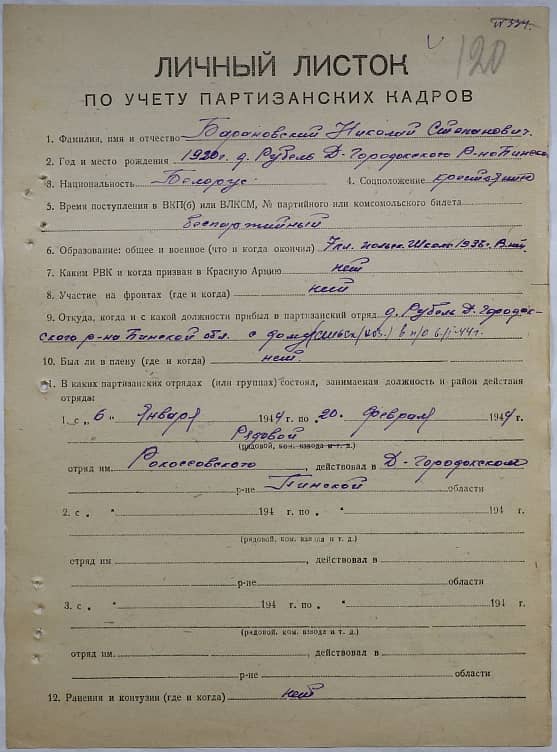 120
ЛИЧНЫЙ ЛИСТОК
ПО УЧЕТУ ПАРТИЗАНСКИХ КАДРОВ
1. Фамилия, имя и отчество Барановский Николай Степанович.
2. Год и место рождения 1920 г. д. Рубель Д-Городокского р-на Пинск
3. Национальность Белорус. 4. Соцположение крестьянин
5. Время поступления в ВКП(б) или ВЛКСМ, № партийного или комсомольского билета
беспартийный
6. Образование: общее и военное (что и когда окончил) 7 кл. польск. школ 1936 г.
7. Каким РВК и когда призван в Красную Армию нет
8. Участие на фронтах (где и когда) нет
9. Откуда, когда и с какой должности прибыл в партизанский отряд д. Рубель Д. Городок-
ского р-на Пинской обл. с дому (сельск. хоз.) в п/о 6/I-44 г.
10. Был ли в плену (где и когда) нет.
1. В каких партизанских отрядах (или группах) состоял, занимаемая должность и район действия
отряда:
1. с „ 6 " Января 1944 г. по „ 20 " февраля 1944 г.
Рядовой
(рядовой, ком. взвода и т. д.)
отряд им. Рокоссовского, действовал в Д-Городокском
р-не Пинской области
2. с „ " 194 г. по „ " 194 г.
(рядовой, ком. взвода и т. д.)
отряд им , действовал в
р-не области
3. с „ " 194 г. по „ " 194 г.
(рядовой, ком. взвода и т. д.)
отряд им. , действовал в
р-не области
12. Ранения и контузии (где и когда) нет